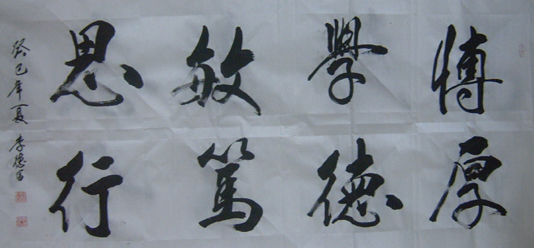 博學敏思
厚德篤行
癸巳年夏 李德